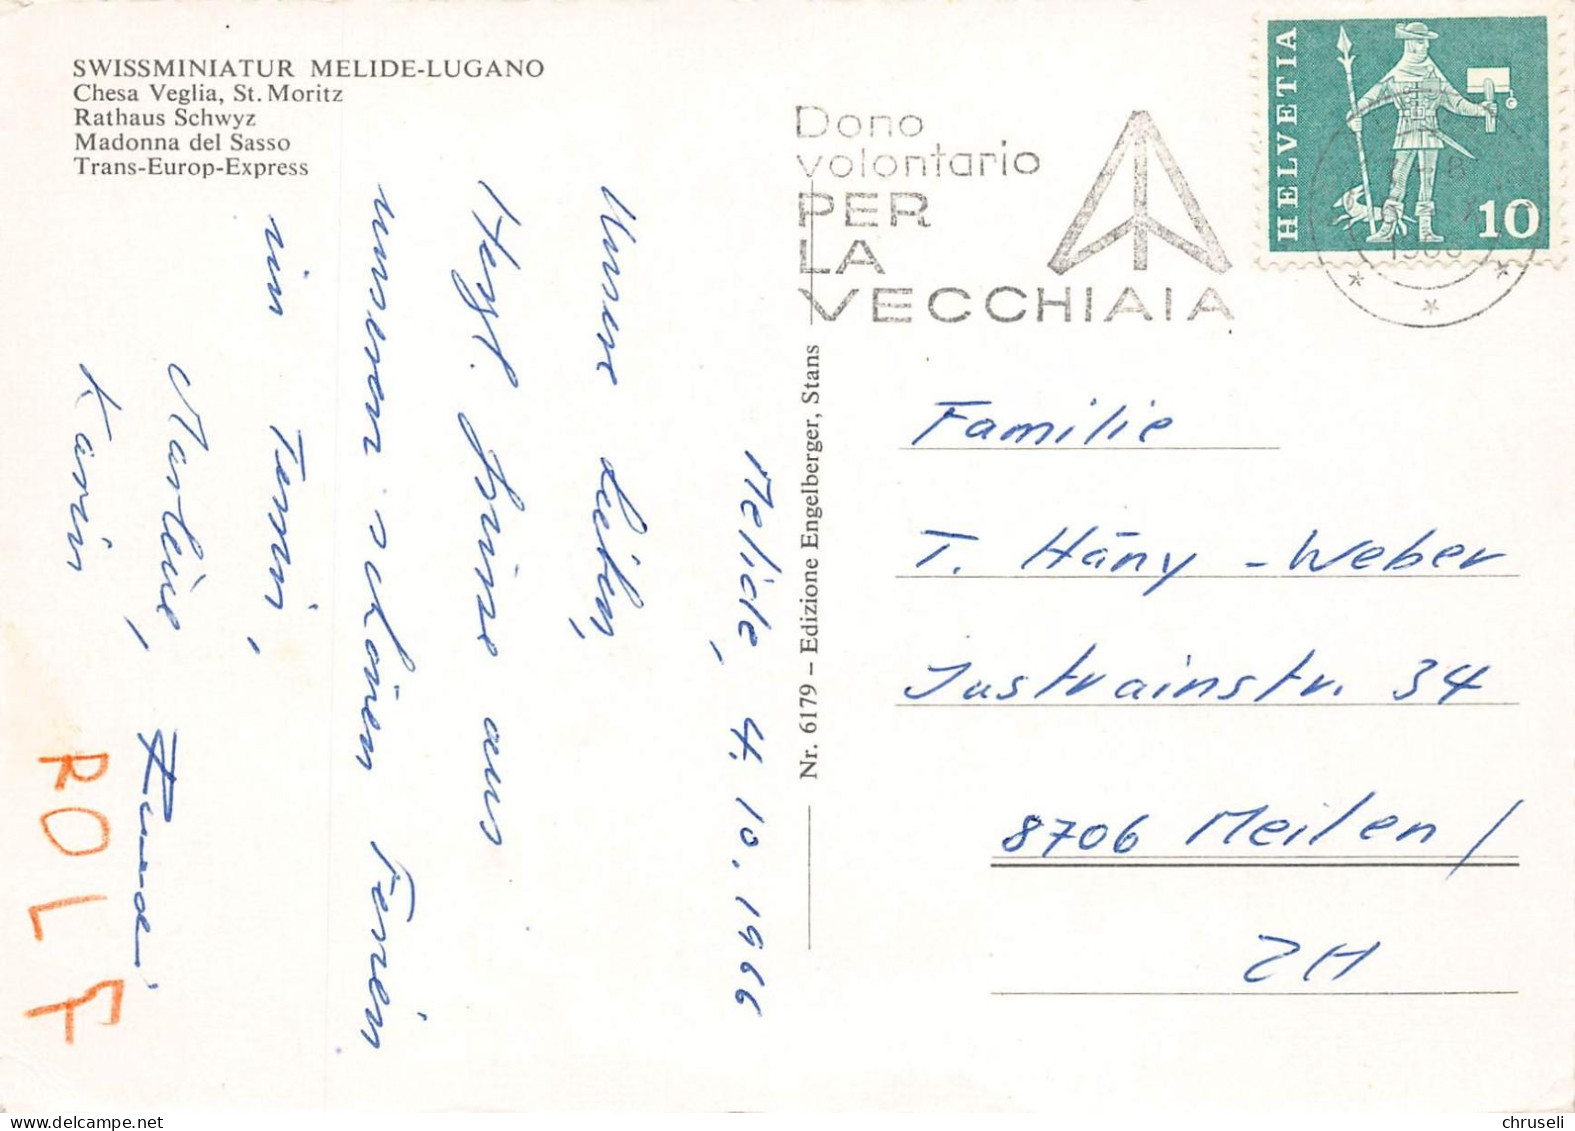 SWISSMINIATUR MELIDE-LUGANO
Chesa Veglia, St. Moritz
Rathaus Schwyz
Madonna del Sasso
Trans-Europ-Express
Dono
volontario
PER
LA
VECCHIAIA
HELVETIA
10
Nr. 6179 – Edizione Engelberger, Stans
Melide, 4. 10. 1966
Unsere Lieben,
Herzl. Grüsse aus
unseren schönen Ferien
im Tessin,
Marlène,
Karin
Ruedi
ROLF
Familie
T. Häny - Weber
Justrainstr. 34
8706 Meilen /
ZH
chruseli